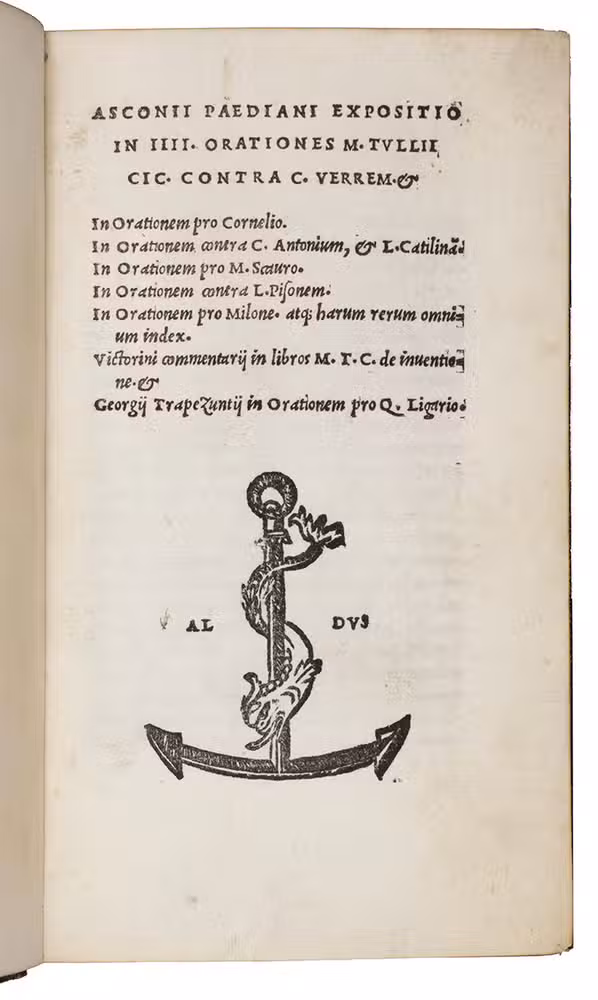 ASCONII PAEDIANI EXPOSITIO
IN IIII. ORATIONES M. TVLLII
CIC. CONTRA C. VERREM. &
In Orationem pro Cornelio.
In Orationem contra C. Antonium, & L. Catilinā.
In Orationem pro M. Scauro.
In Orationem contra L. Pisonem.
In Orationem pro Milone. atq; harum rerum omni=
um index.
Victorini commentarij in libros M. T. C. de inuentio=
ne. &
Georgij Trapezuntij in Orationem pro Q. Ligario.
AL DVS